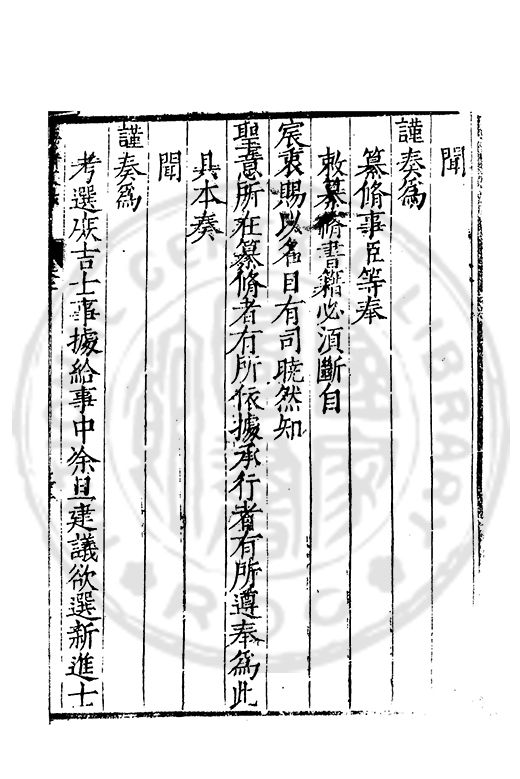 聞
謹奏為
纂脩事臣等奉
敕纂脩書籍必須斷自
宸衷賜以名目有司曉然知
聖意所在纂脩者有所依據承行者有所遵奉為此
具本奏
聞
謹奏為
考選庶吉士事據給事中涂旦建議欲選新進士